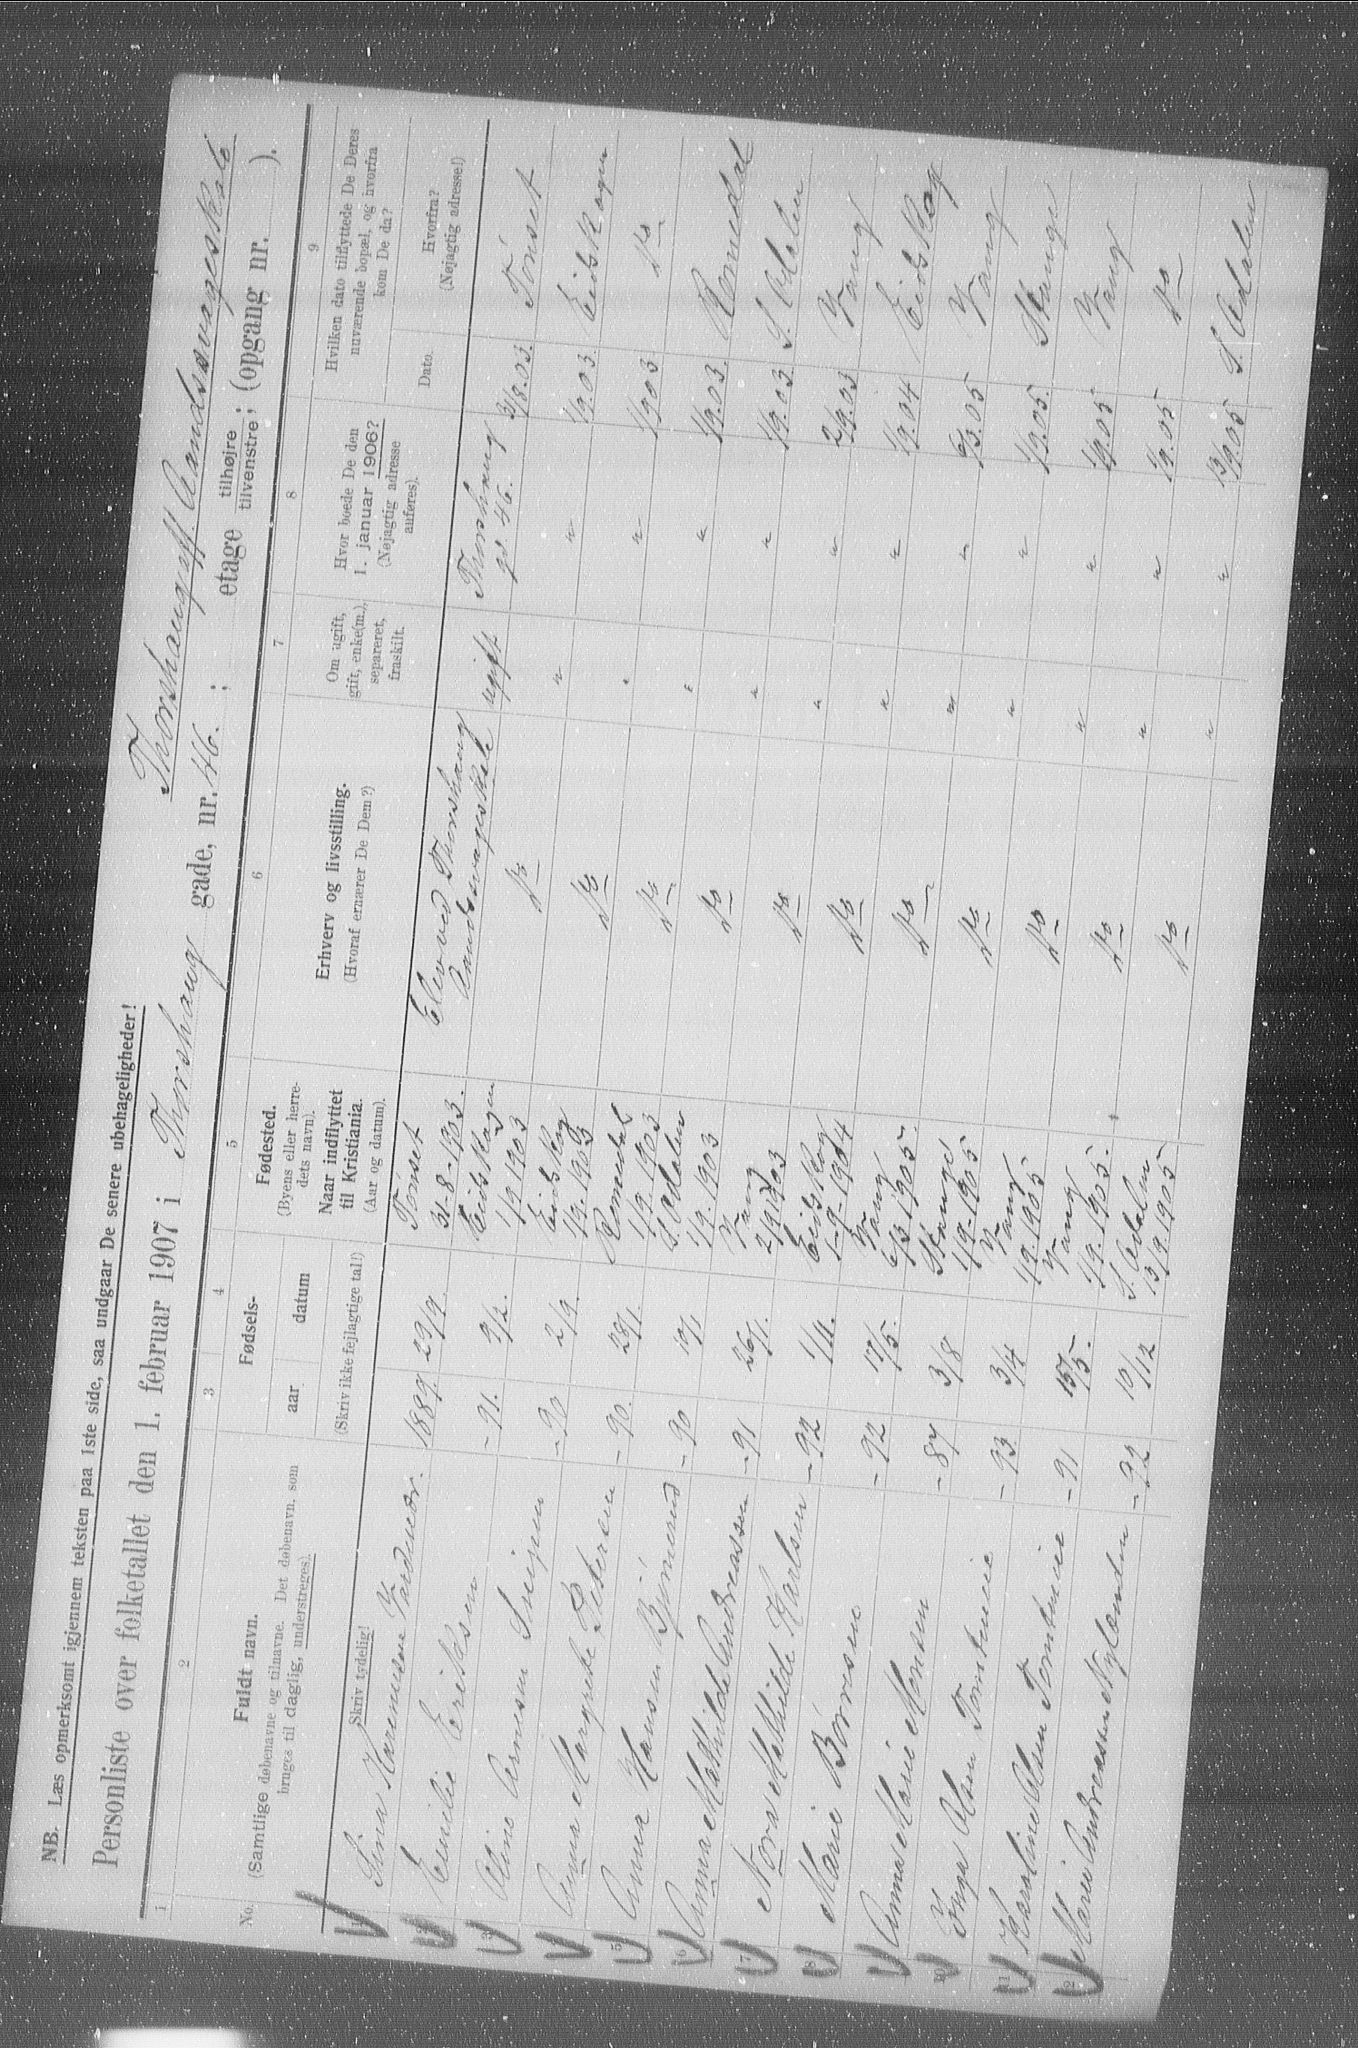 NB. Læs opmerksomt igjennem teksten paa 1ste side, saa undgaar De senere ubehageligheder!
Thorshaug aff. Aandssvageskole
Personliste over folketallet den 1. februar 1907 i Thorshaug gade, nr. 46. ; etage tilhøjre tilvenstre; (opgang nr. ).
1 2 3 4 5 6 7 8 9
No. Fuldt navn.
(Samtlige døbenavne og tilnavne. Det døbenavn, som
bruges til daglig, understreges).
Skriv tydelig!
Fødsels-
aar datum
(Skriv ikke fejlagtige tal!)
Fødested.
(Byens eller herre-
dets navn).
Naar indflyttet
til Kristiania.
(Aar og datum).
Erhverv og livsstilling.
(Hvoraf ernærer De Dem?)
Om ugift,
gift, enke(m.),
separeret,
fraskilt.
Hvor boede De den
1. januar 1906?
(Nøjagtig adresse
anføres).
Hvilken dato tilflyttede De Deres
nuværende bopæl, og hvorfra
kom De da?
Dato. Hvorfra?
(Nøjagtig adresse!)
1 Sina Karensen 1889. 29/9. Tönset Elev ved Thorshaug ugift Thorshaug 31/8.03. Tönset
31-8-1903. Aandssvageskole gd. 46.
2 Emilie Eriksen -91. 9/2. Eidskogen Do " " 1/9.03. Eidskogen
1/9 1903
3 Oline Arnesen -90 2/9. Eidskog Do " " 1/9 03 Do
1/9.1903
4 Anna Margrete Petersen -90. 28/1. Romedal Do " " 1/9.03. Romedal
1/9.1903
5 Anna Hansen -90 S. Odalen Do " " 1/9.03 S. Odalen
1/9.1903
6 Anna Mathilde Andreassen -91 26/1. Vang Do " " 2/9.03 Vang
2/9 1903
7 Nora Mathilde Karlsen -92 1/4. Eidskog Do " " 1/9.04 Eidskog
1-9-1904
8 Marie Börresen -92 17/5. Vang Do " " 6/3.05 Vang
6/3 1905.
9 Anna Marie Monsen -87 3/8 Stange Do " " 1/9.05. Stange
1/9-1905
10 Inga Olsen -93 3/4 Vang Do " " 1/9.05 Vang
1/9.1905
11 Karoline Olsen -91 15/5. Vang Do " " 1/9.05 Do
1/9.1905.
12 Marie Andreassen Nylænden -92 10/12 S. Odalen Do " " 13/9.05 S. Odalen
13/9.1905